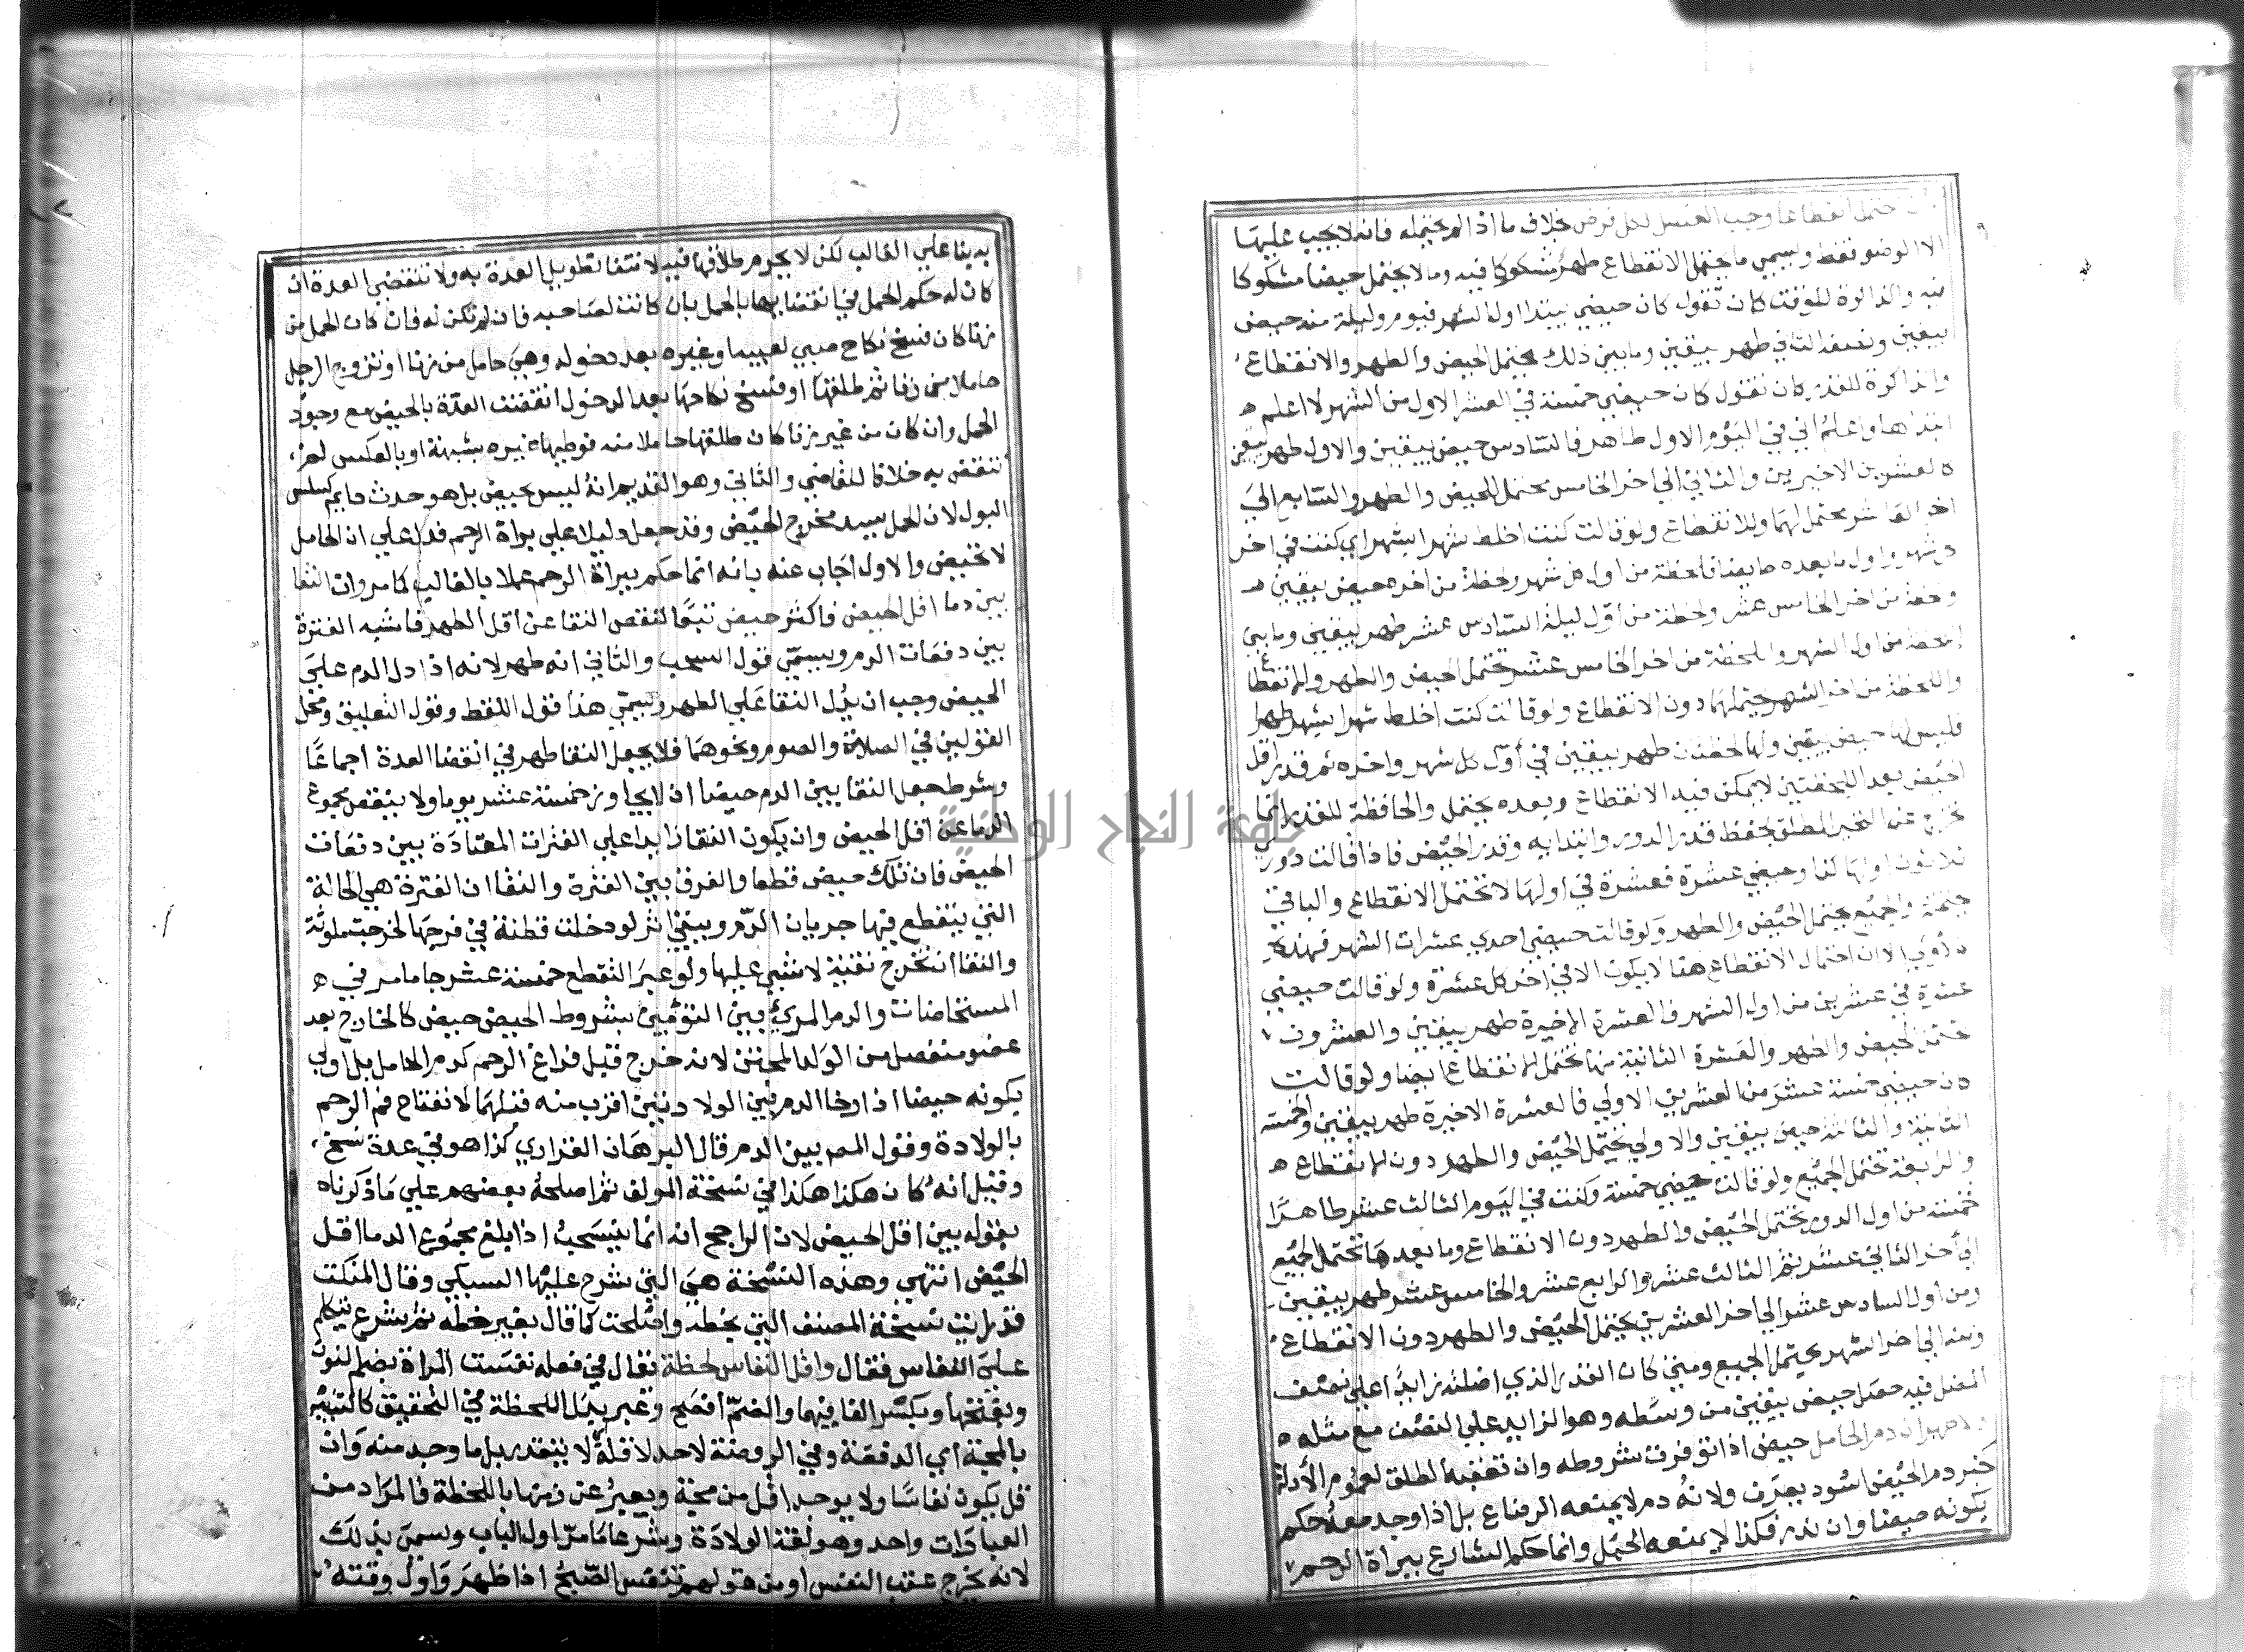 احتمل انقطاعا وجب الغسل لكل فرض بخلاف ما اذا لم يحتمله فانه لا يجب عليها
الا الوضو فقط ويسمي ما يحتمل الانقطاع طهر مشكوكا فيه وما لا يحتمل حيضا مشكوكا
فيه والذاكرة للوقت كان تقول كان حيضي يبتدا اول الشهر فيوم وليلة منه حيض
بيقين ونصفه الثاني طهر بيقين وما بين ذلك يحتمل الحيض والطهر والانقطاع
والذاكرة للقدر كان تقول كان حيضي خمسة في العشر الاول من الشهر لا اعلم
ابتداها واعلم اني في اليوم الاول طاهر فالسادس حيض بيقين والاول طهر بيقين
كالعشرين الاخيرين والثاني الي اخر الخامس يحتمل الحيض والطهر والسابع الي
اخر العاشر يحتملهما وللانقطاع ولو قالت كنت اخلط شهرا بشهر اي كنت في اخر
كل شهر واول ما بعده حايضا فلحظة من اول كل شهر ولحظة من اخره حيض بيقين
ولحظة من اخر الخامس عشر ولحظة من اول ليلة السادس عشر طهر بيقين وما بين
اللحظة من اول الشهر واللحظة من اخر الخامس عشر تحتمل الحيض والطهر والانقطاع
واللحظة من اخر الشهر يحتملهما دون الانقطاع ولو قالت كنت اخلط شهرا بشهر طهرا
فليس لها حيض بيقين ولها لحظتان طهر بيقين في اول كل شهر واخره ثم قدر اقل
الحيض بعد اللحظتين لا يمكن فيه الانقطاع وبعده يحتمل والحافظة للقدر انما
تخرج عن التحير المطلق بحفظ قدر الدور وابتدايه وقدر الحيض فاذا قالت دوري
ثلاثون اولها كذا وحيضي عشرة فعشرة في اولها لا تحتمل الانقطاع والباقي
يحتمله والجميع يحتمل الحيض والطهر ولو قالت حيضي احدي عشرات الشهر فهذه
الا ان احتمال الانقطاع هنا لا يكون الا في اخر كل عشرة ولو قالت حيضي
عشرة في عشرين من اول الشهر فالعشرة الاخيرة طهر بيقين والعشرون
تحتمل الحيض والطهر والعشرة الثانية منها تحتمل الانقطاع ايضا ولو قالت
كان حيضي خمسة عشر من العشرين الاولي فالعشرة الاخيرة طهر بيقين والخمسة
الثانية والثالثة حيض بيقين والاولي يحتمل الحيض والطهر دون الانقطاع
والرابعة تحتمل الجميع ولو قالت حيضي خمسة وكنت في اليوم الثالث عشر طاهرا
فخمسة من اول الدور تحتمل الحيض والطهر دون الانقطاع وما بعدها تحتمل الجميع
الي اخر الثاني عشر ثم الثالث عشر والرابع عشر والخامس عشر طهر بيقين
ومن اول السادس عشر الي اخر العشرين يحتمل الحيض والطهر دون الانقطاع
ومنه الي اخر الشهر يحتمل الجميع ومتي كان القدر الذي اضلته زايدا علي نصف
المضل فيه حصل حيض بيقين من وسطه وهو الزايد علي النصف مع مثله
والاظهر ان دم الحامل حيض اذا توفرت شروطه وان تعقبه الطلق لعموم الادلة
كخبر دم الحيض اسود يعرف ولانه دم لا يمنعه الرضاع بل اذا وجد معه حكم
بكونه حيضا وان ندر فكذا لا يمنعه الحمل وانما حكم الشارع ببراة الرحم
به بنا علي الغالب لكن لا يحرم طلاقها فيه لانتفا تطويل العدة به ولا تنقضي العدة ان
كان له حكم الحمل في انقضايها بالحمل بان كانت لصاحبه فان لم تكن له فان كان الحمل من
زنا كان فسخ نكاح صبي لعيبها وغيره بعد دخوله وهي حامل من زنا او تزوج الرجل
حاملا من زنا ثم طلقها او فسخ نكاحها بعد الدخول انقضت العدة بالحيض مع وجود
الحمل وان كان من غير زنا كان طلقها حاملا منه فوطيها غيره بشبهة او بالعكس لم
تنقض به خلافا للقاضي والثاني وهو القديم انه ليس بحيض بل هو حدث دايم كسلس
البول لان الحمل يسد مخرج الحيض وقد جعل دليلا علي براة الرحم فدل علي ان الحامل
لا تحيض والاول اجاب عنه بانه انما حكم ببراة الرحم عملا بالغالب كما مر وان النقا
بين دما اقل الحيض فاكثر حيض تبعا لنقص النقا عن اقل الطهر فاشبه الفترة
بين دفعات الدم ويسمي قول السحب والثاني انه طهر لانه اذا دل الدم علي
الحيض وجب ان يدل النقا علي الطهر ويسمي هذا قول اللقط وقول التلفيق ومحل
القولين في الصلاة والصوم ونحوهما فلا يجعل النقا طهر في انقضا العدة اجماعا
وشرط جعل النقا بين الدم حيضا ان لا يجاوز خمسة عشر يوما ولا ينقص مجموع
الدما عن اقل الحيض وان يكون النقا زايدا علي الفترات المعتادة بين دفعات
الحيض فان تلك حيض قطعا والفرق بين الفترة والنقا ان الفترة هي الحالة
التي ينقطع فيها جريان الدم ويبقي اثر لو دخلت قطنة في فرجها لخرجت ملوثة
والنقا ان تخرج نقية لا شي عليها ولو عبر التقطع خمسة عشر جا ما مر في
المستحاضات والدم المريي بين التؤمين بشروط الحيض حيض كالخارج بعد
عضو منفصل من الولد المجتن لانه خرج قبل فراغ الرحم كدم الحامل بل اولي
بكونه حيضا اذ ارخا الدم بين الولادتين اقرب منه قبلهما لانفتاح فم الرحم
بالولادة وقول المص بين الدم قال البرهان الفزاري كذا هو في عدة نسخ
وقيل انه كان هكذا هكذا في نسخة المولف ثم اصلحه بعضهم علي ما ذكرناه
بقوله بين اقل الحيض لان الراجح انه انما ينسحب اذا بلغ مجموع الدما اقل
الحيض انتهي وهذه النسخة هي التي شرح عليها السبكي وقال المنكت
قد رايت نسخة المصنف التي بخطه واصلحت كما قال بغير خطه ثم شرع يتكلم
علي النفاس فقال واقل النفاس لحظة تقال في فعله نفست المراة بضم النون
وبفتحها وبكسر الفا فيهما والضم افصح وعبر بدل اللحظة في التحقيق كالتنبيه
بالمجة اي الدفعة وفي الروضة لا حد لاقله لا يتقدر بل ما وجد منه وان
قل يكون نفاسا ولا يوجد اقل من مجة ويعبر عن زمنها باللحظة فالمراد من
العبارات واحد وهو لغة الولادة وشرعا ما مر اول الباب وسمي بذلك
لانه يخرج عقب النفس او من قولهم تنفس الصبح اذا ظهر واول وقته
جامعة النجاح الوطنية